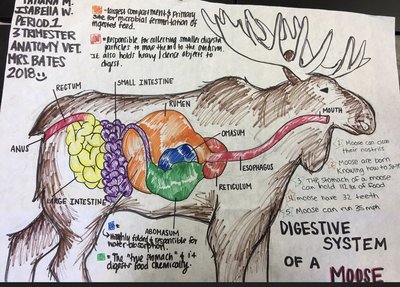 TATIANA M.
ISABELLA N.
PERIOD.1
3 TRIMESTER
ANATOMY VET.
MRS. BATES
2018
-largest compartment & primary
site for microbial fermentation of
ingested feed.
-Responsible for collecting smaller digesta
particles to move them to the omasum.
It also holds heavy/dense objects to
digest.
RECTUM
SMALL INTESTINE
RUMEN
OMASUM
MOUTH
ANUS
ESOPHAGUS
RETICULUM
LARGE INTESTINE
ABOMASUM
1. Moose can close
their nostrils
2. Moose are born
knowing how to
3. The stomach of a moose
can hold 112 lbs of food
4. moose have 32 teeth
5. Moose can run 35 mph
Highly folded & responsible for
water absorption.
-The "true stomach" & it
digests food chemically.
DIGESTIVE
SYSTEM
OF A MOOSE